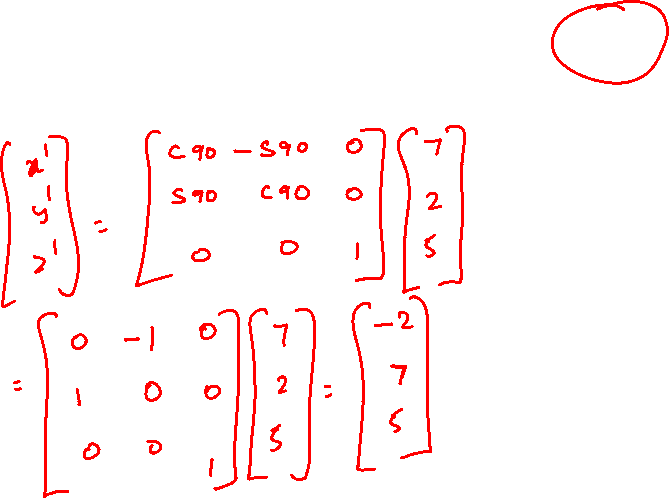 [x' y' z'] = [C90 -S90 0; S90 C90 0; 0 0 1] [7; 2; 5]
= [0 -1 0; 1 0 0; 0 0 1] [7; 2; 5] = [-2; 7; 5]